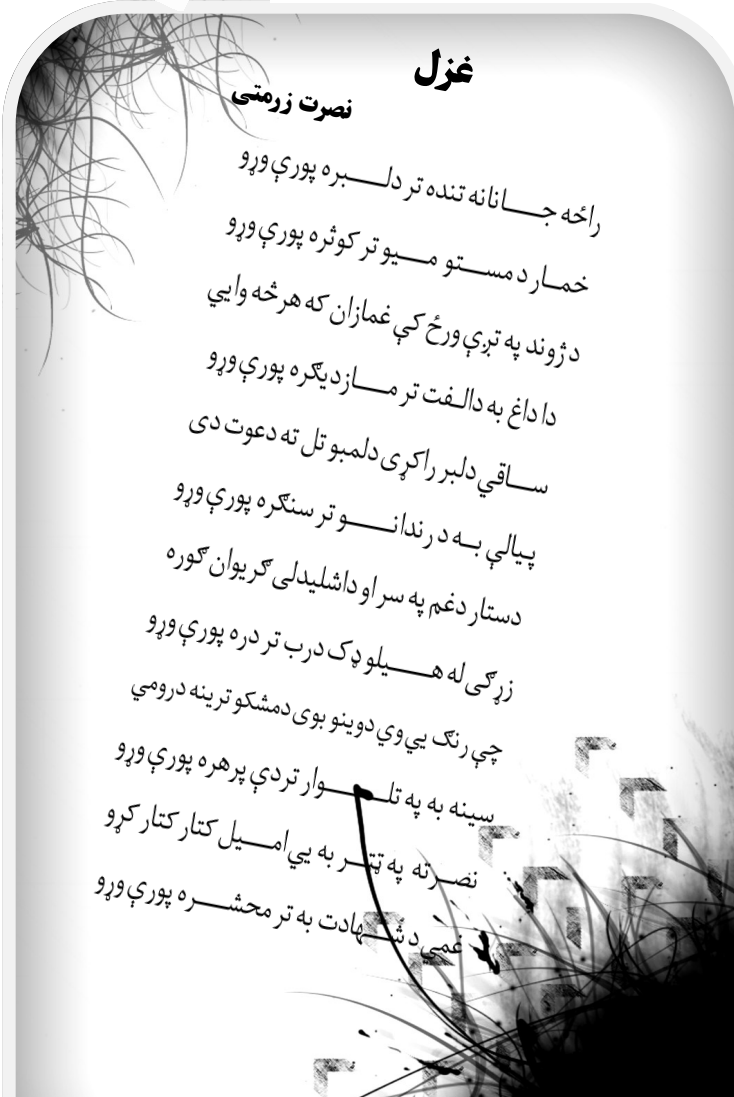 غزل
نصرت زرمتی
راځه جانانه تنده تر دلبره پورې وړو
خمار د مستو میو تر کوثره پورې وړو
د ژوند په تږې ورځ کې غمازان که هرڅه وایي
دا داغ به دالفت تر مازدیګره پورې وړو
ساقي دلبر راکړی دلمبو تل ته دعوت دی
پیالې به د رندانو تر سنګره پورې وړو
دستار دغم په سر او داشلیدلی ګریوان ګوره
زړګی له هیلو ډک درب تر دره پورې وړو
چې رنګ یې وي دوینو بوی دمشکو ترینه درومي
سینه به په تلوار تردې پرهره پورې وړو
نصرته په ټټر به یې امیل کتار کتار کړو
غمي د شهادت به تر محشره پورې وړو